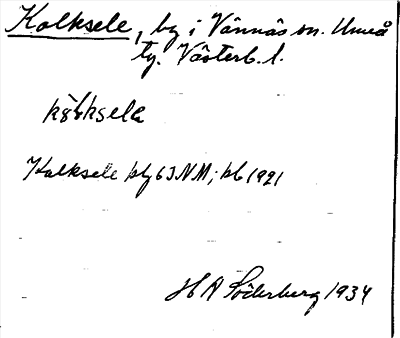 Kolksele, by i Vännäs sn. Umeå
tg. Västerb. l.
Kolksele bl 63 NM; kb 1921
H A Söderberg 1934